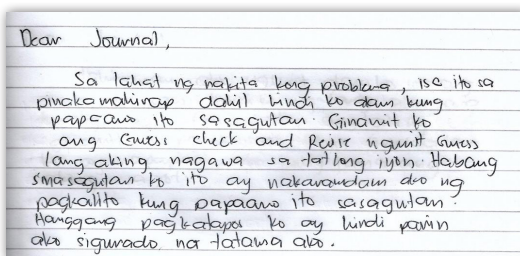 Dear Journal,
Sa lahat ng nakita kong problema, isa ito sa
pinakamahirap dahil hindi ko alam kung
papaano ito sasagutan. Ginamit ko
ang Guess check and Revise ngunit Guess
lang aking nagawa sa tatlong iyon. Habang
sinasagutan ko ito ay nakaramdam ako ng
pagkalito kung papaano ito sasagutan.
Hanggang pagkatapos ko ay hindi parin
ako sigurado na tatama ako.